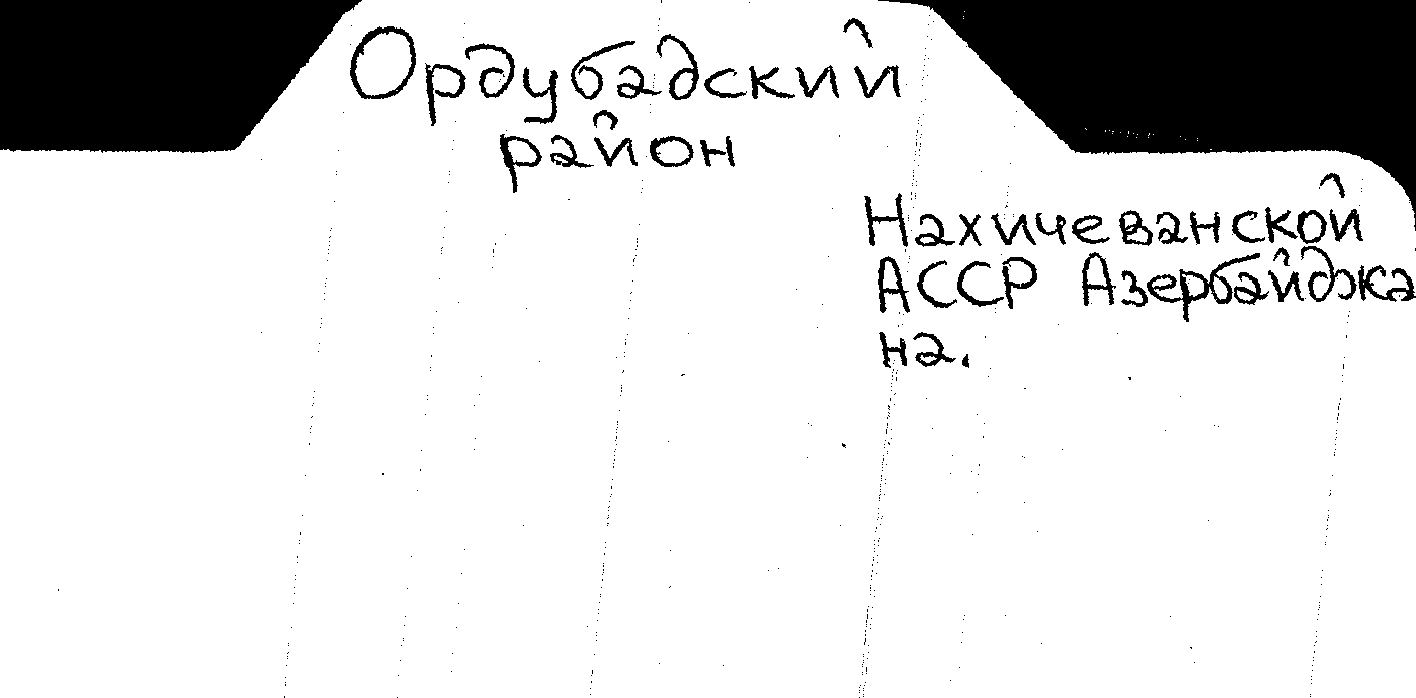 Ордубадский
район
Нахичеванской
АССР Азербайджа
на.